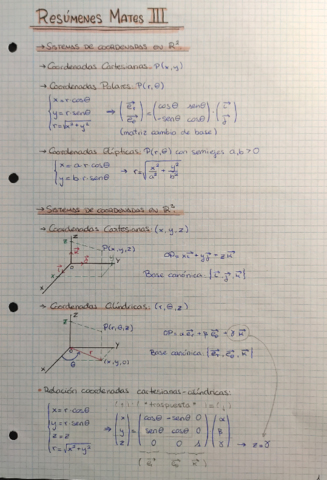 RESÚMENES MATES III
→ SISTEMAS DE COORDENADAS EN R²
→ Coordenadas Cartesianas: P(x,y)
→ Coordenadas Polares: P(r,θ)
{ x=r·cosθ
y=r·senθ
r=√x²+y² ⇒ (e⃗r e⃗θ) = (cosθ senθ -senθ cosθ)·(i⃗ j⃗)
(matriz cambio de base)
→ Coordenadas Elípticas: P(r,θ) con semiejes a,b>0
{ x=a·r·cosθ
y=b·r·senθ → r=√x²/a² + y²/b²
→ SISTEMAS DE COORDENADAS EN R³
→ Coordenadas Cartesianas: (x,y,z)
z
P(x,y,z)
y
x
OP=xi⃗+yj⃗+zk⃗
Base canónica: |i⃗ j⃗ k⃗|
→ Coordenadas Cilíndricas: (r,θ,z)
z
P(r,θ,z)
y
r
(x,y,0)
θ
x
Base canónica: |e⃗r, e⃗θ, k⃗|
Relación coordenadas cartesianas-cilíndricas:
"traspuesta"
{ x=r·cosθ
y=r·senθ
z=z
r=√x²+y² ⇒ (x y z) = (cosθ -senθ 0 senθ cosθ 0 0 0 1)(α β γ) → z=γ